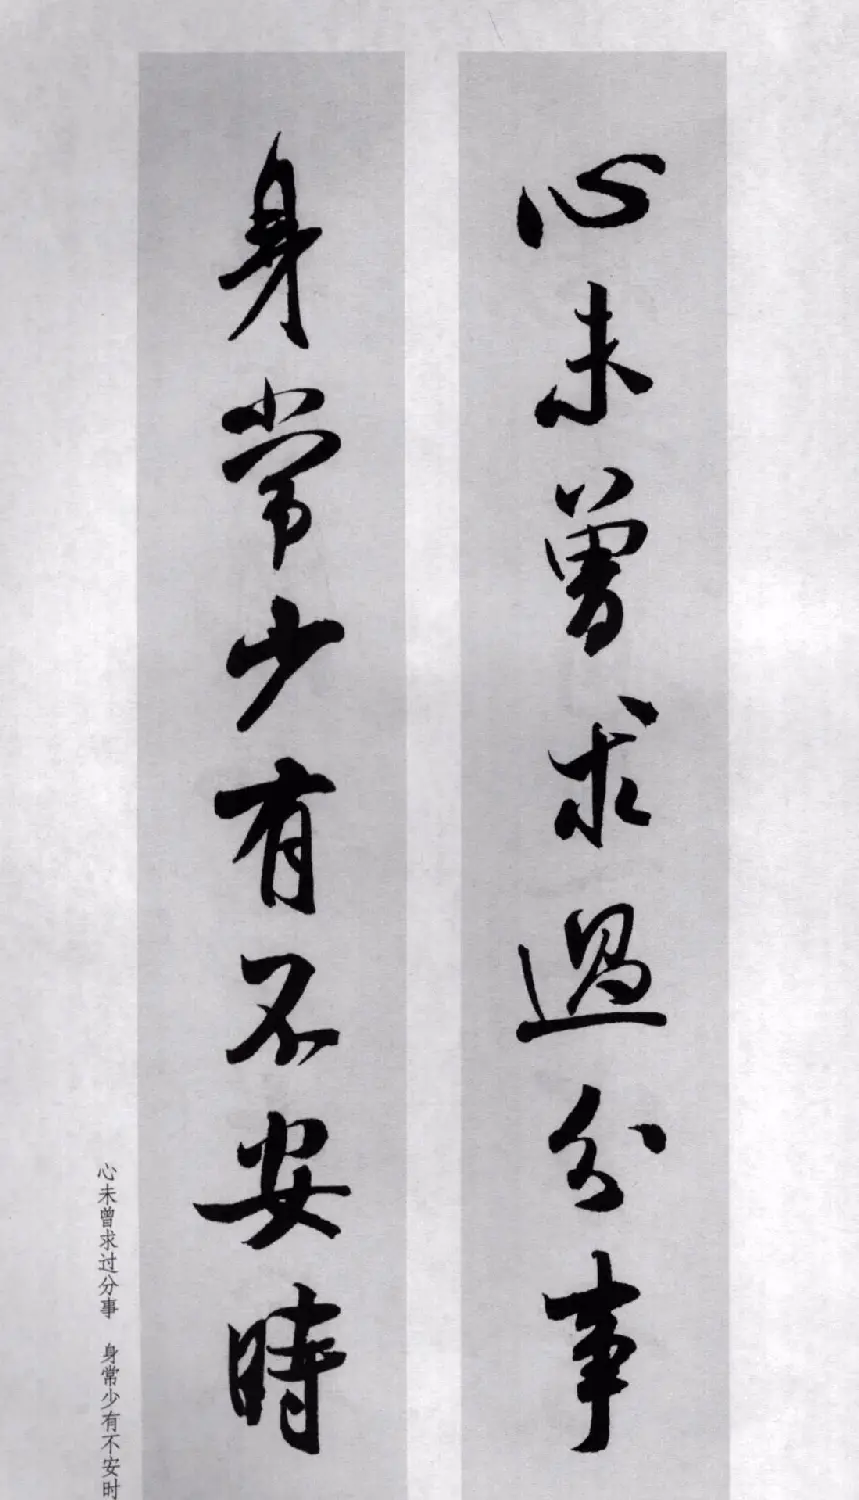 心未曾求過分事
身常少有不安時
心未曾求过分事 身常少有不安时